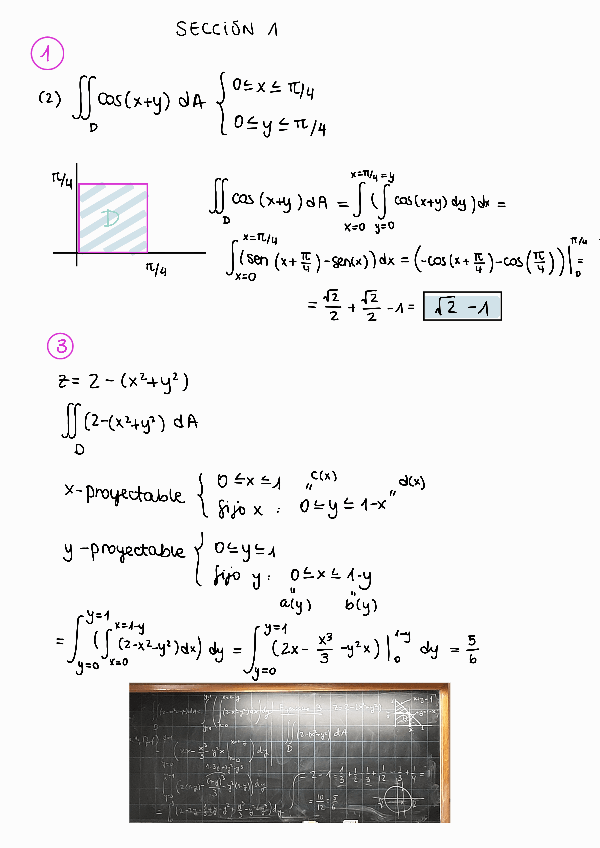 SECCIÓN 1
1
(2) ∬_D cos(x+y) dA { 0≤x≤π/4
0≤y≤π/4
π/4
D
π/4
∬_D cos(x+y)dA = ∫_{x=0}^{x=π/4} (∫_{y=0}^{π/4=y} cos(x+y)dy)dx =
∫_{x=0}^{x=π/4} (sen(x+π/4)-sen(x))dx = (-cos(x+π/4)-cos(π/4))|_0^{π/4} =
= √2/2 + √2/2 - 1 = √2 - 1
3
z = 2-(x²+y²)
∬_D (2-(x²+y²) dA
x-proyectable { 0≤x≤1 c(x) d(x)
fijo x: 0≤y≤1-x
y-proyectable { 0≤y≤1
fijo y: 0≤x≤1-y
a(y) b(y)
= ∫_{y=0}^{y=1} (∫_{x=0}^{x=1-y} (2-x²-y²)dx) dy = ∫_{y=0}^{y=1} (2x - x³/3 - y²x)|_0^{1-y} dy = 5/6